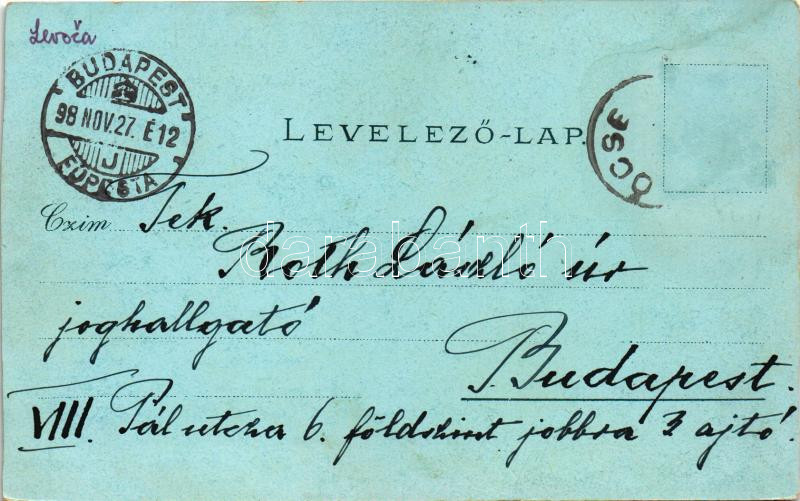 Levoča
BUDAPEST
98 NOV. 27. É 12
J
FŐPOSTA
LEVELEZŐ-LAP.
ŐCSE
Czim
Tek.
Roth László úr
darabanth
joghallgató
Budapest.
VIII. Pál utcza 6. földszint jobbra 3 ajtó.